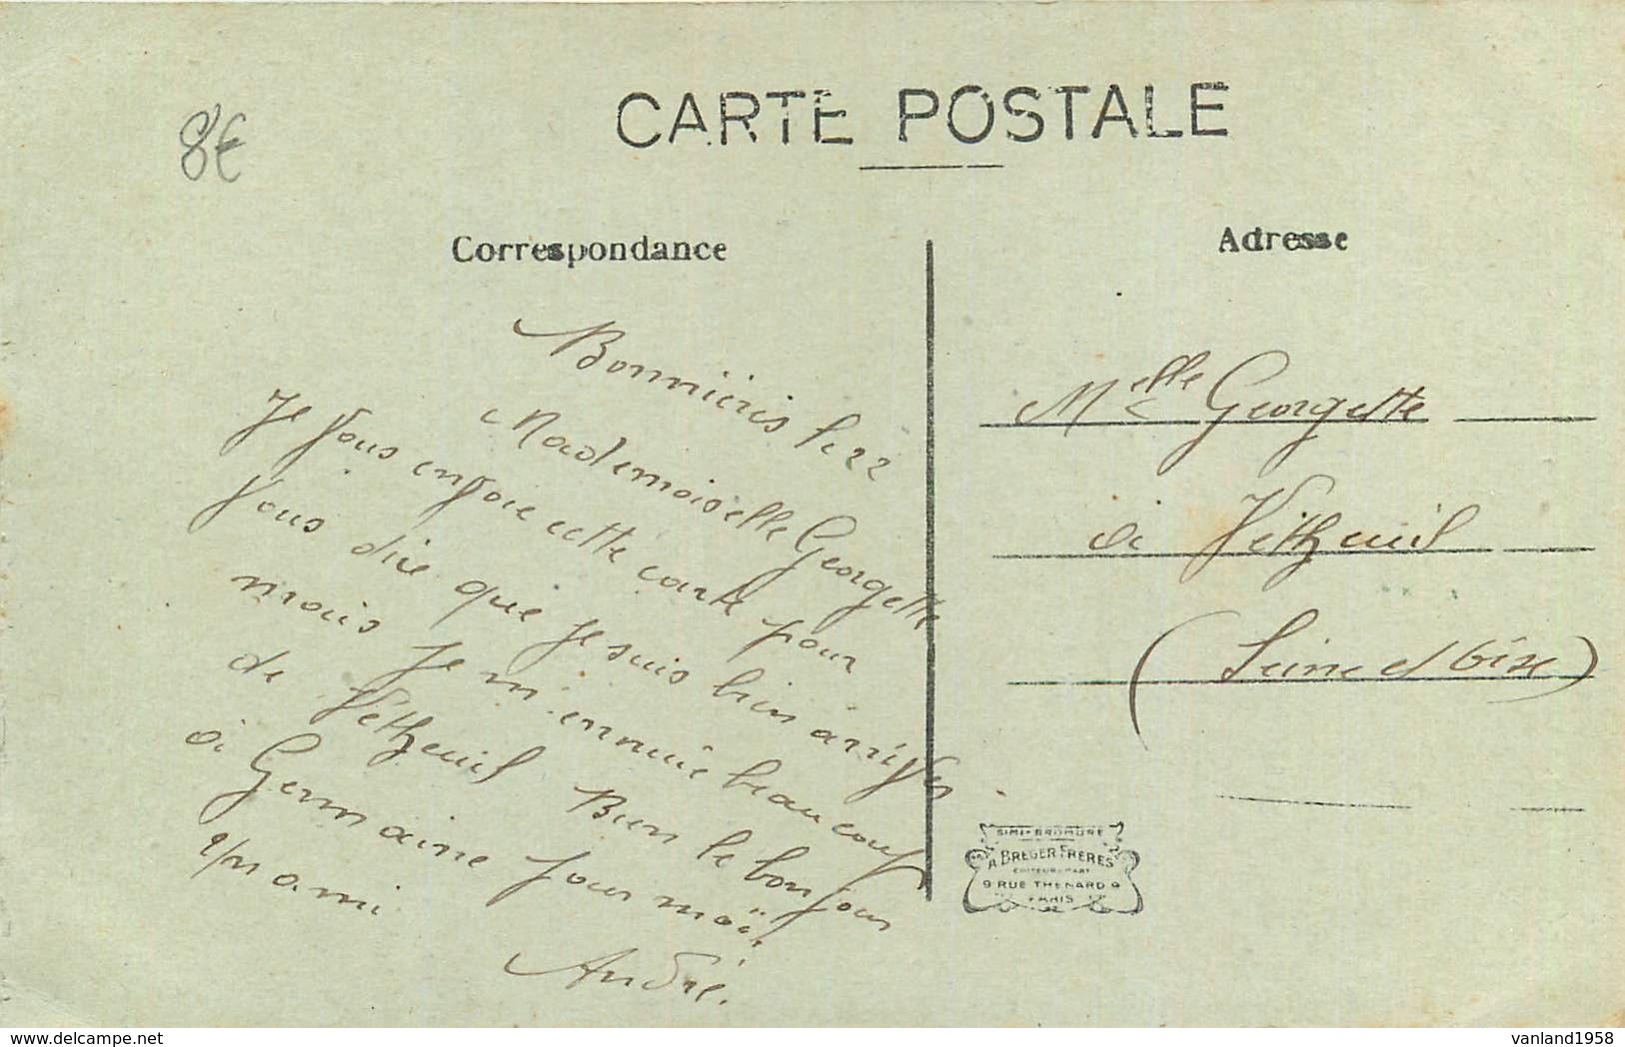 8€
CARTE POSTALE
Correspondance
Adresse
Bonnières le 22
Mademoiselle Georgette
Je vous envoie cette carte pour
vous dire que je suis bien arrivée
mais je m'ennuie beaucoup
de Vétheuil Bien le bonjour
à Germaine pour moi
ami
André.
Melle Georgette
à Vétheuil
(Seine et Oise)
SIMI-BROMURE
A BREGER FRÈRES
EDITEURS D'ART
9 RUE THENARD 9
PARIS
delcampe.net
vanland1958